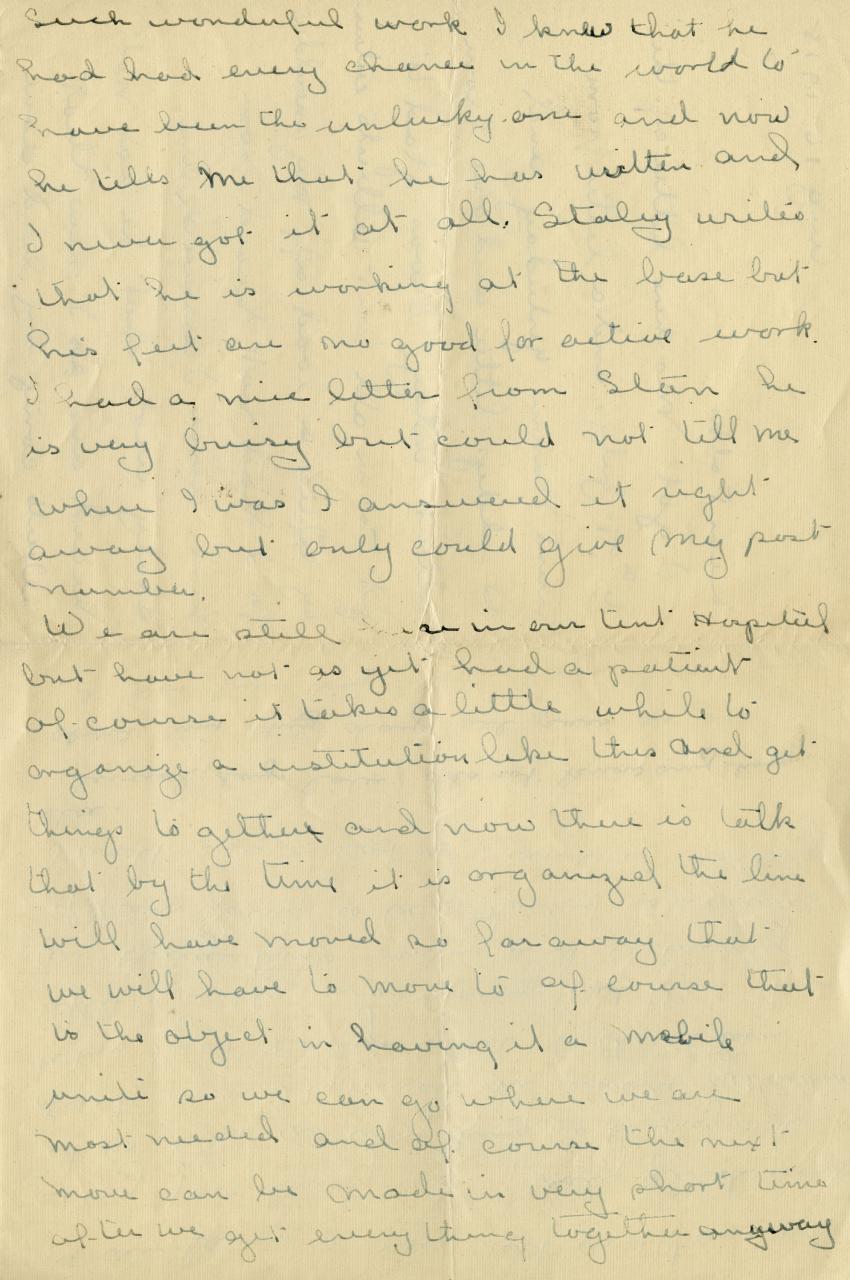 Such wonderful work I knew that he
had had every chance in the world to
have been the unlucky one and now
he tells me that he has written and
I never got it at all. Staley writes
that he is working at the base but
his feet are no good for active work.
I had a nice letter from Stan he
is very buisy but could not tell me
where I was I answered it right
away but only could give my post
number.
We are still in our tent Hospital
but have not as yet had a patient
of course it takes a little while to
organize a institution like this and get
things to gether and now there is talk
that by the time it is organized the line
will have moved so far away that
we will have to move to of course that
is the object in having it a mobile
unite so we can go where we are
most needed and of course the next
move can be made in very short time
after we get every thing together anyway